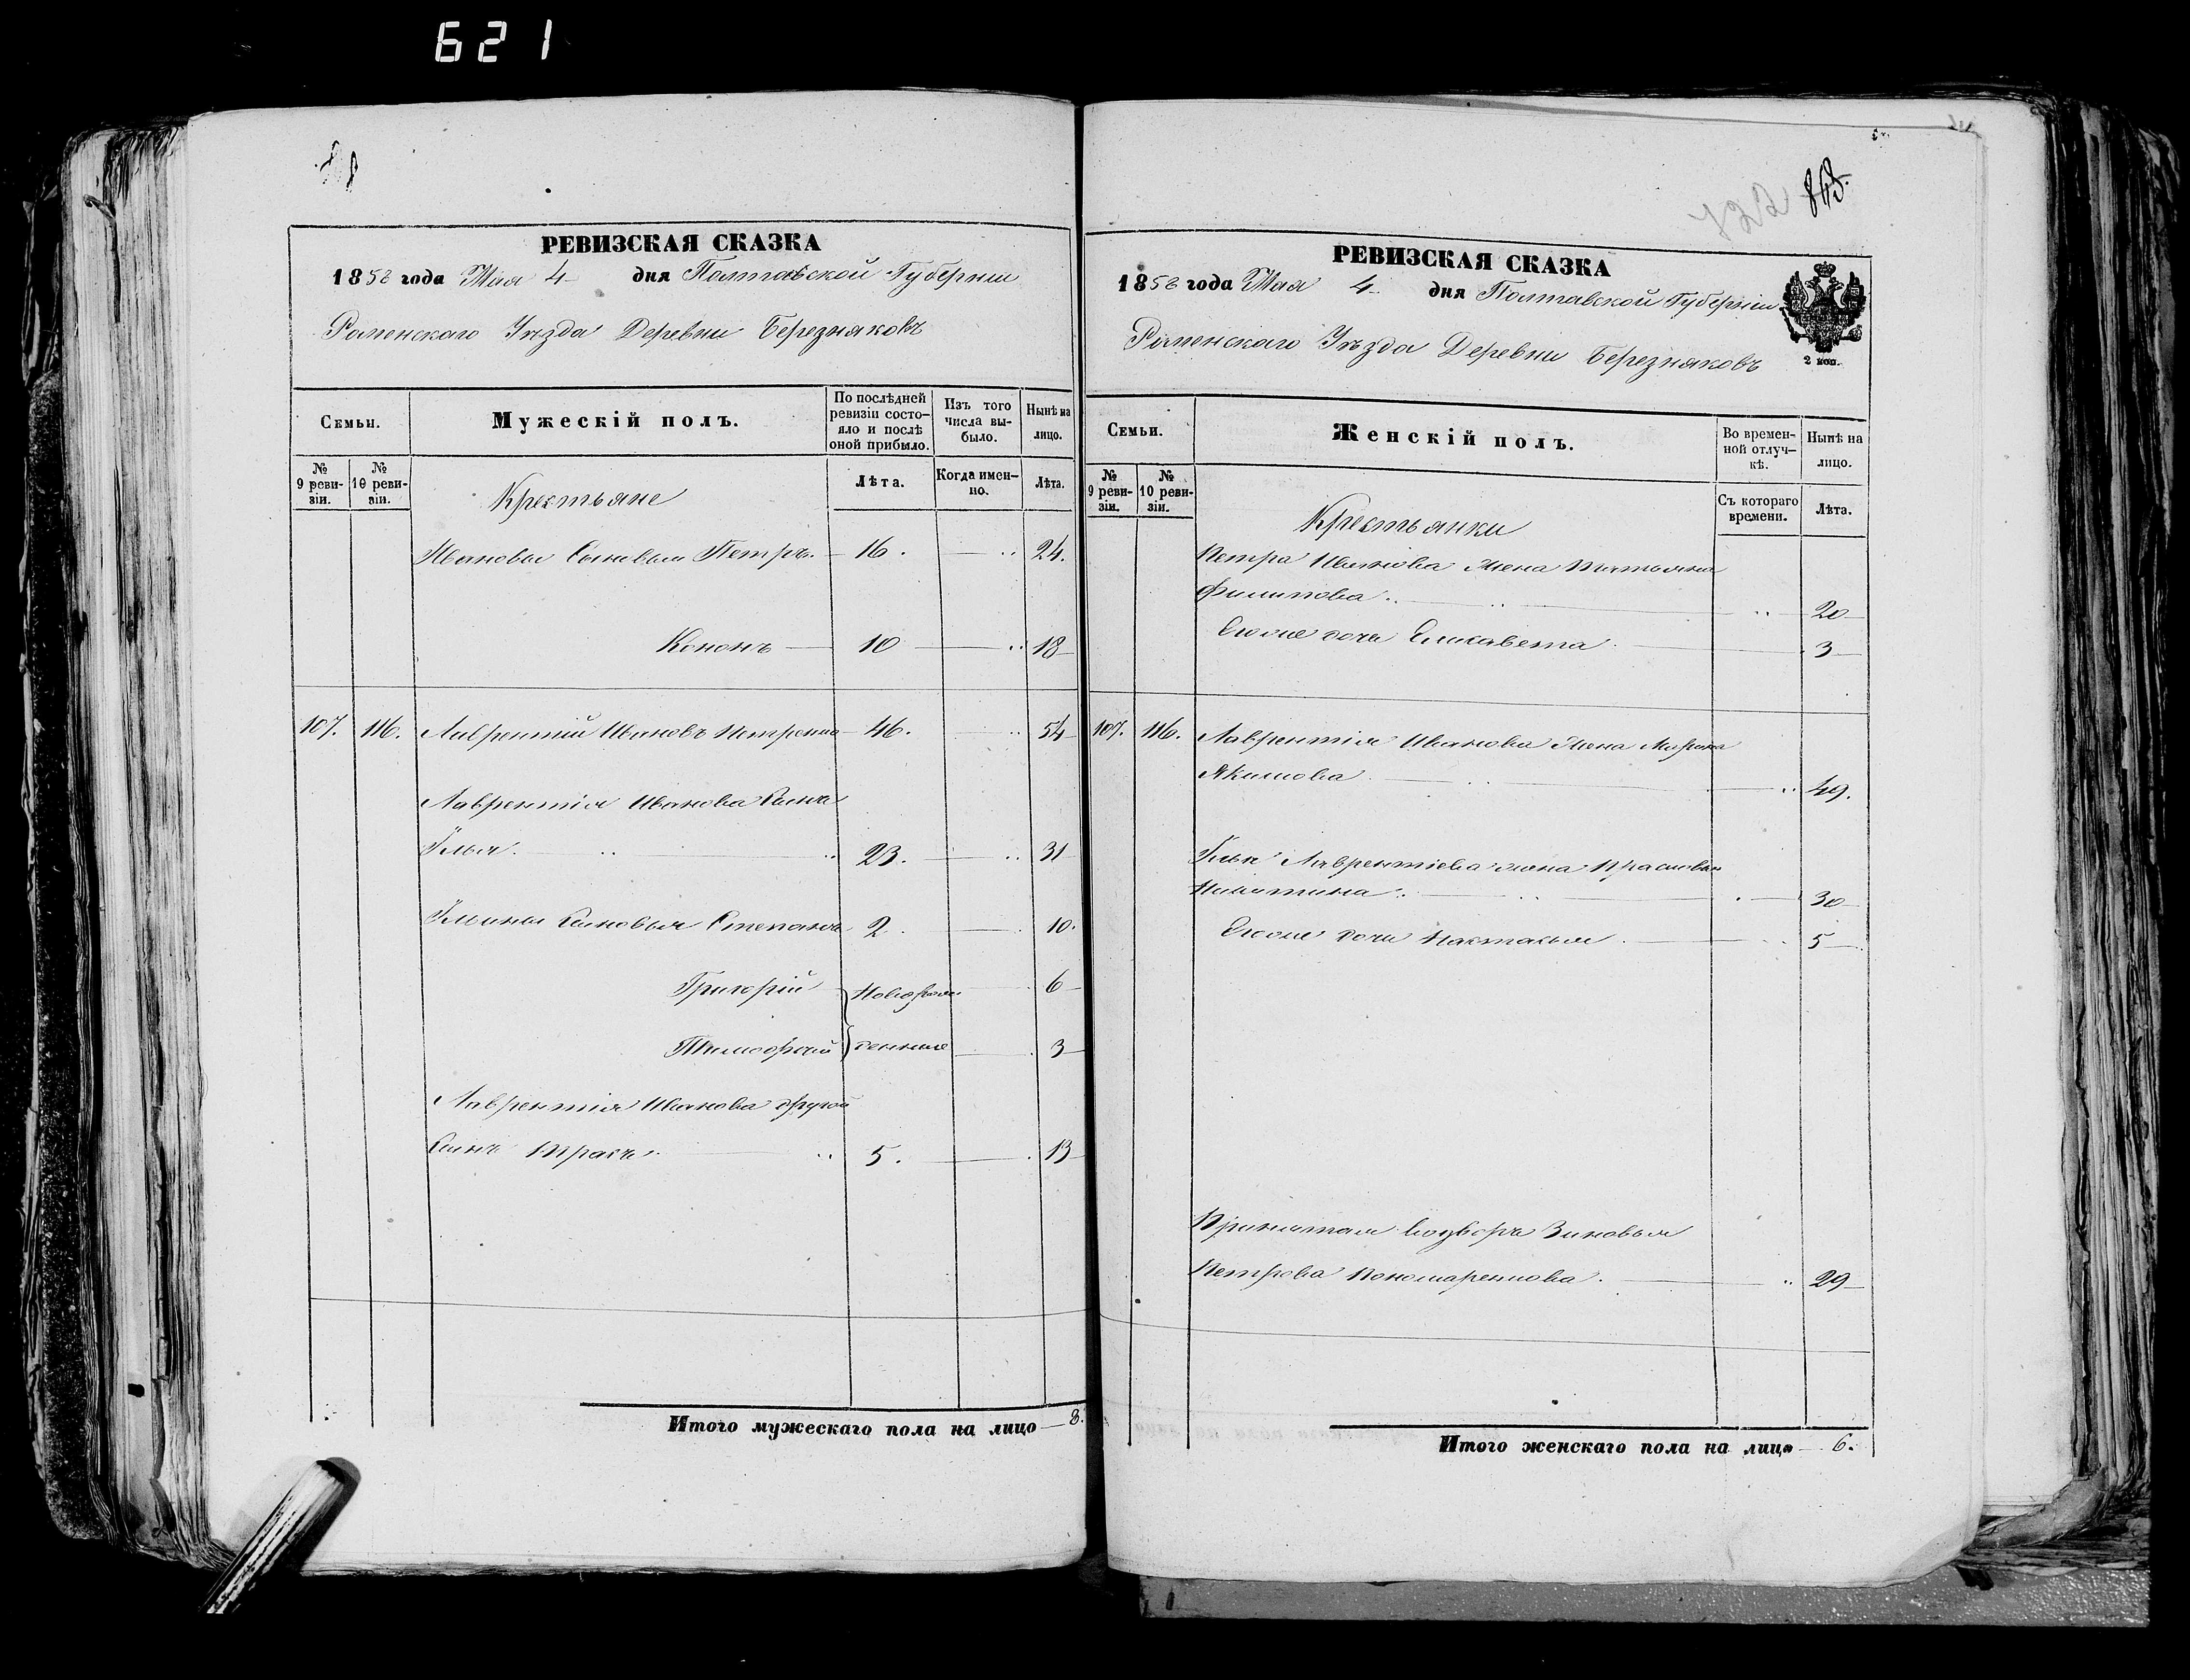 621
РЕВИЗСКАЯ СКАЗКА
1858 года Мая 4 дня Полтавской Губернии
Роменскаго Уѣзда Деревни Березняковъ
Семьи.
Мужескій полъ.
По послѣдней ревизіи состояло и послѣ оной прибыло.
Изъ того числа выбыло.
Нынѣ на лицо.
№ 9 ревизіи.
№ 10 ревизіи.
Крестьяне
Лѣта.
Когда именно.
Лѣта.
Ивановы Сыновья Петръ. 16. 24.
Кононъ 10 18
107. 116. Лаврентій Ивановъ Петренко 46. 54
Лаврентія Иванова Сынъ
Илья. 23. 31
Ильины Сыновья Степанъ 2. 10.
Григорій Новорож 6
Тимофей денные 3
Лаврентія Иванова другой
Сынъ Тарасъ 5. 13
Итого мужескаго пола на лицо 8.
722 843.
РЕВИЗСКАЯ СКАЗКА
1858 года Мая 4 дня Полтавской Губерніи
Роменскаго Уѣзда Деревни Березняковъ
2 коп.
Семьи.
Женскій полъ.
Во временной отлучкѣ.
Нынѣ на лицо.
№ 9 ревизіи.
№ 10 ревизіи.
Крестьянки
Съ котораго времени.
Лѣта.
Петра Иванова жена Татьяна
Филипова 20
Ихъ дочь Елисавета 3
107. 116. Лаврентія Иванова жена Марина
Якимова 49.
Ильи Лаврентіева жена Прасковья
Никитина 30
дочь Настасья 5
Принятая во дворъ Зиновья
Петрова Пономаренкова. 29
Итого женскаго пола на лицо 6.